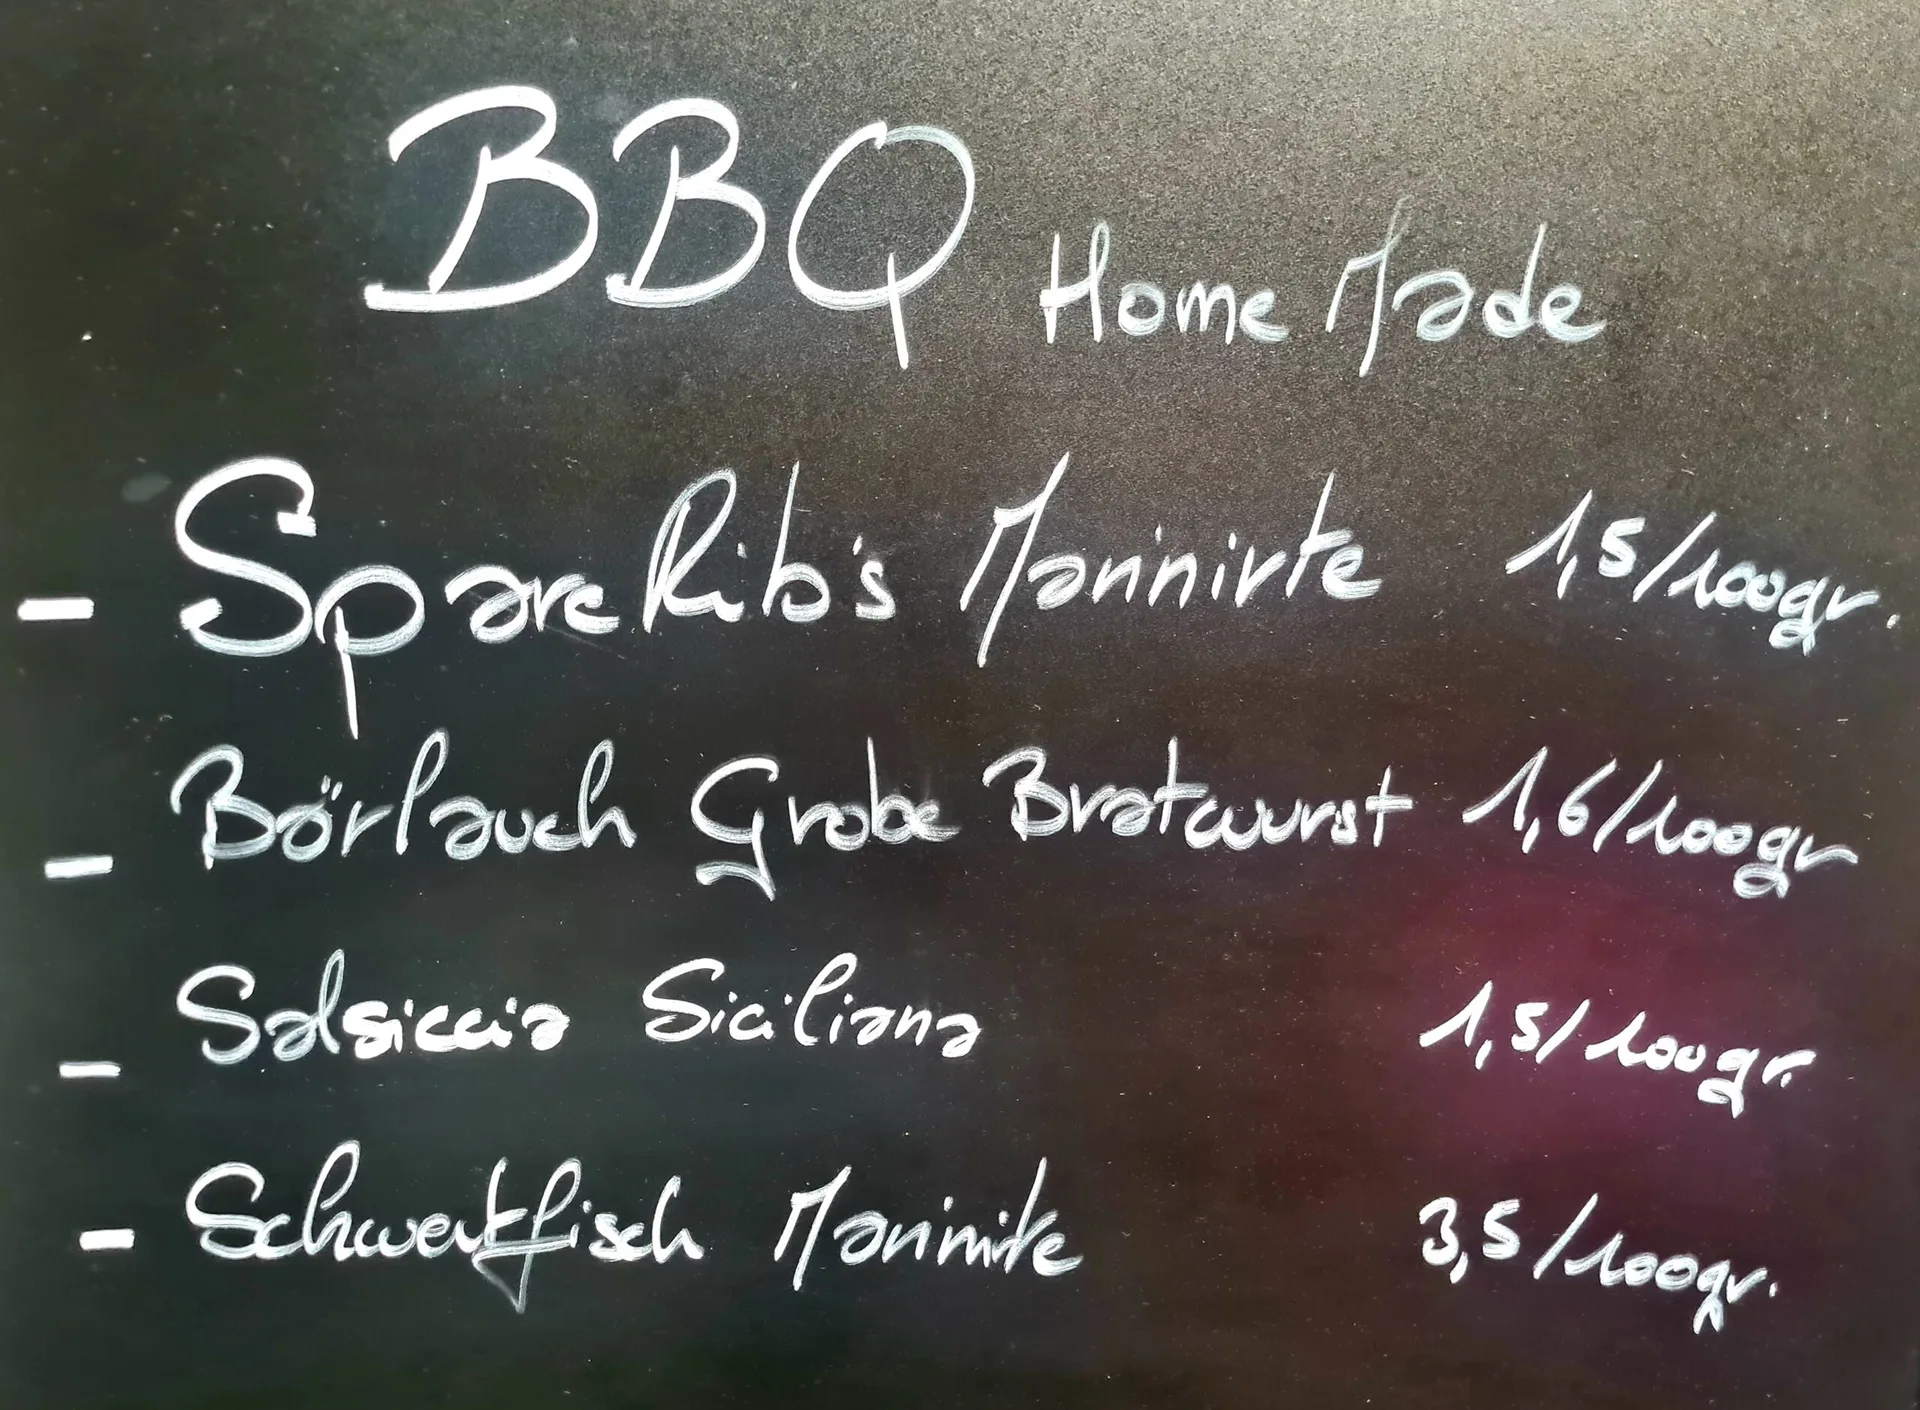 BBQ Home Made
- SpareRib's Marinirte 1,5/100gr.
- Bärlauch Grobe Bratwurst 1,6/100gr
- Salsiccia Siciliana 1,5/100gr.
- Schwertfisch Marinirte 3,5/100gr.